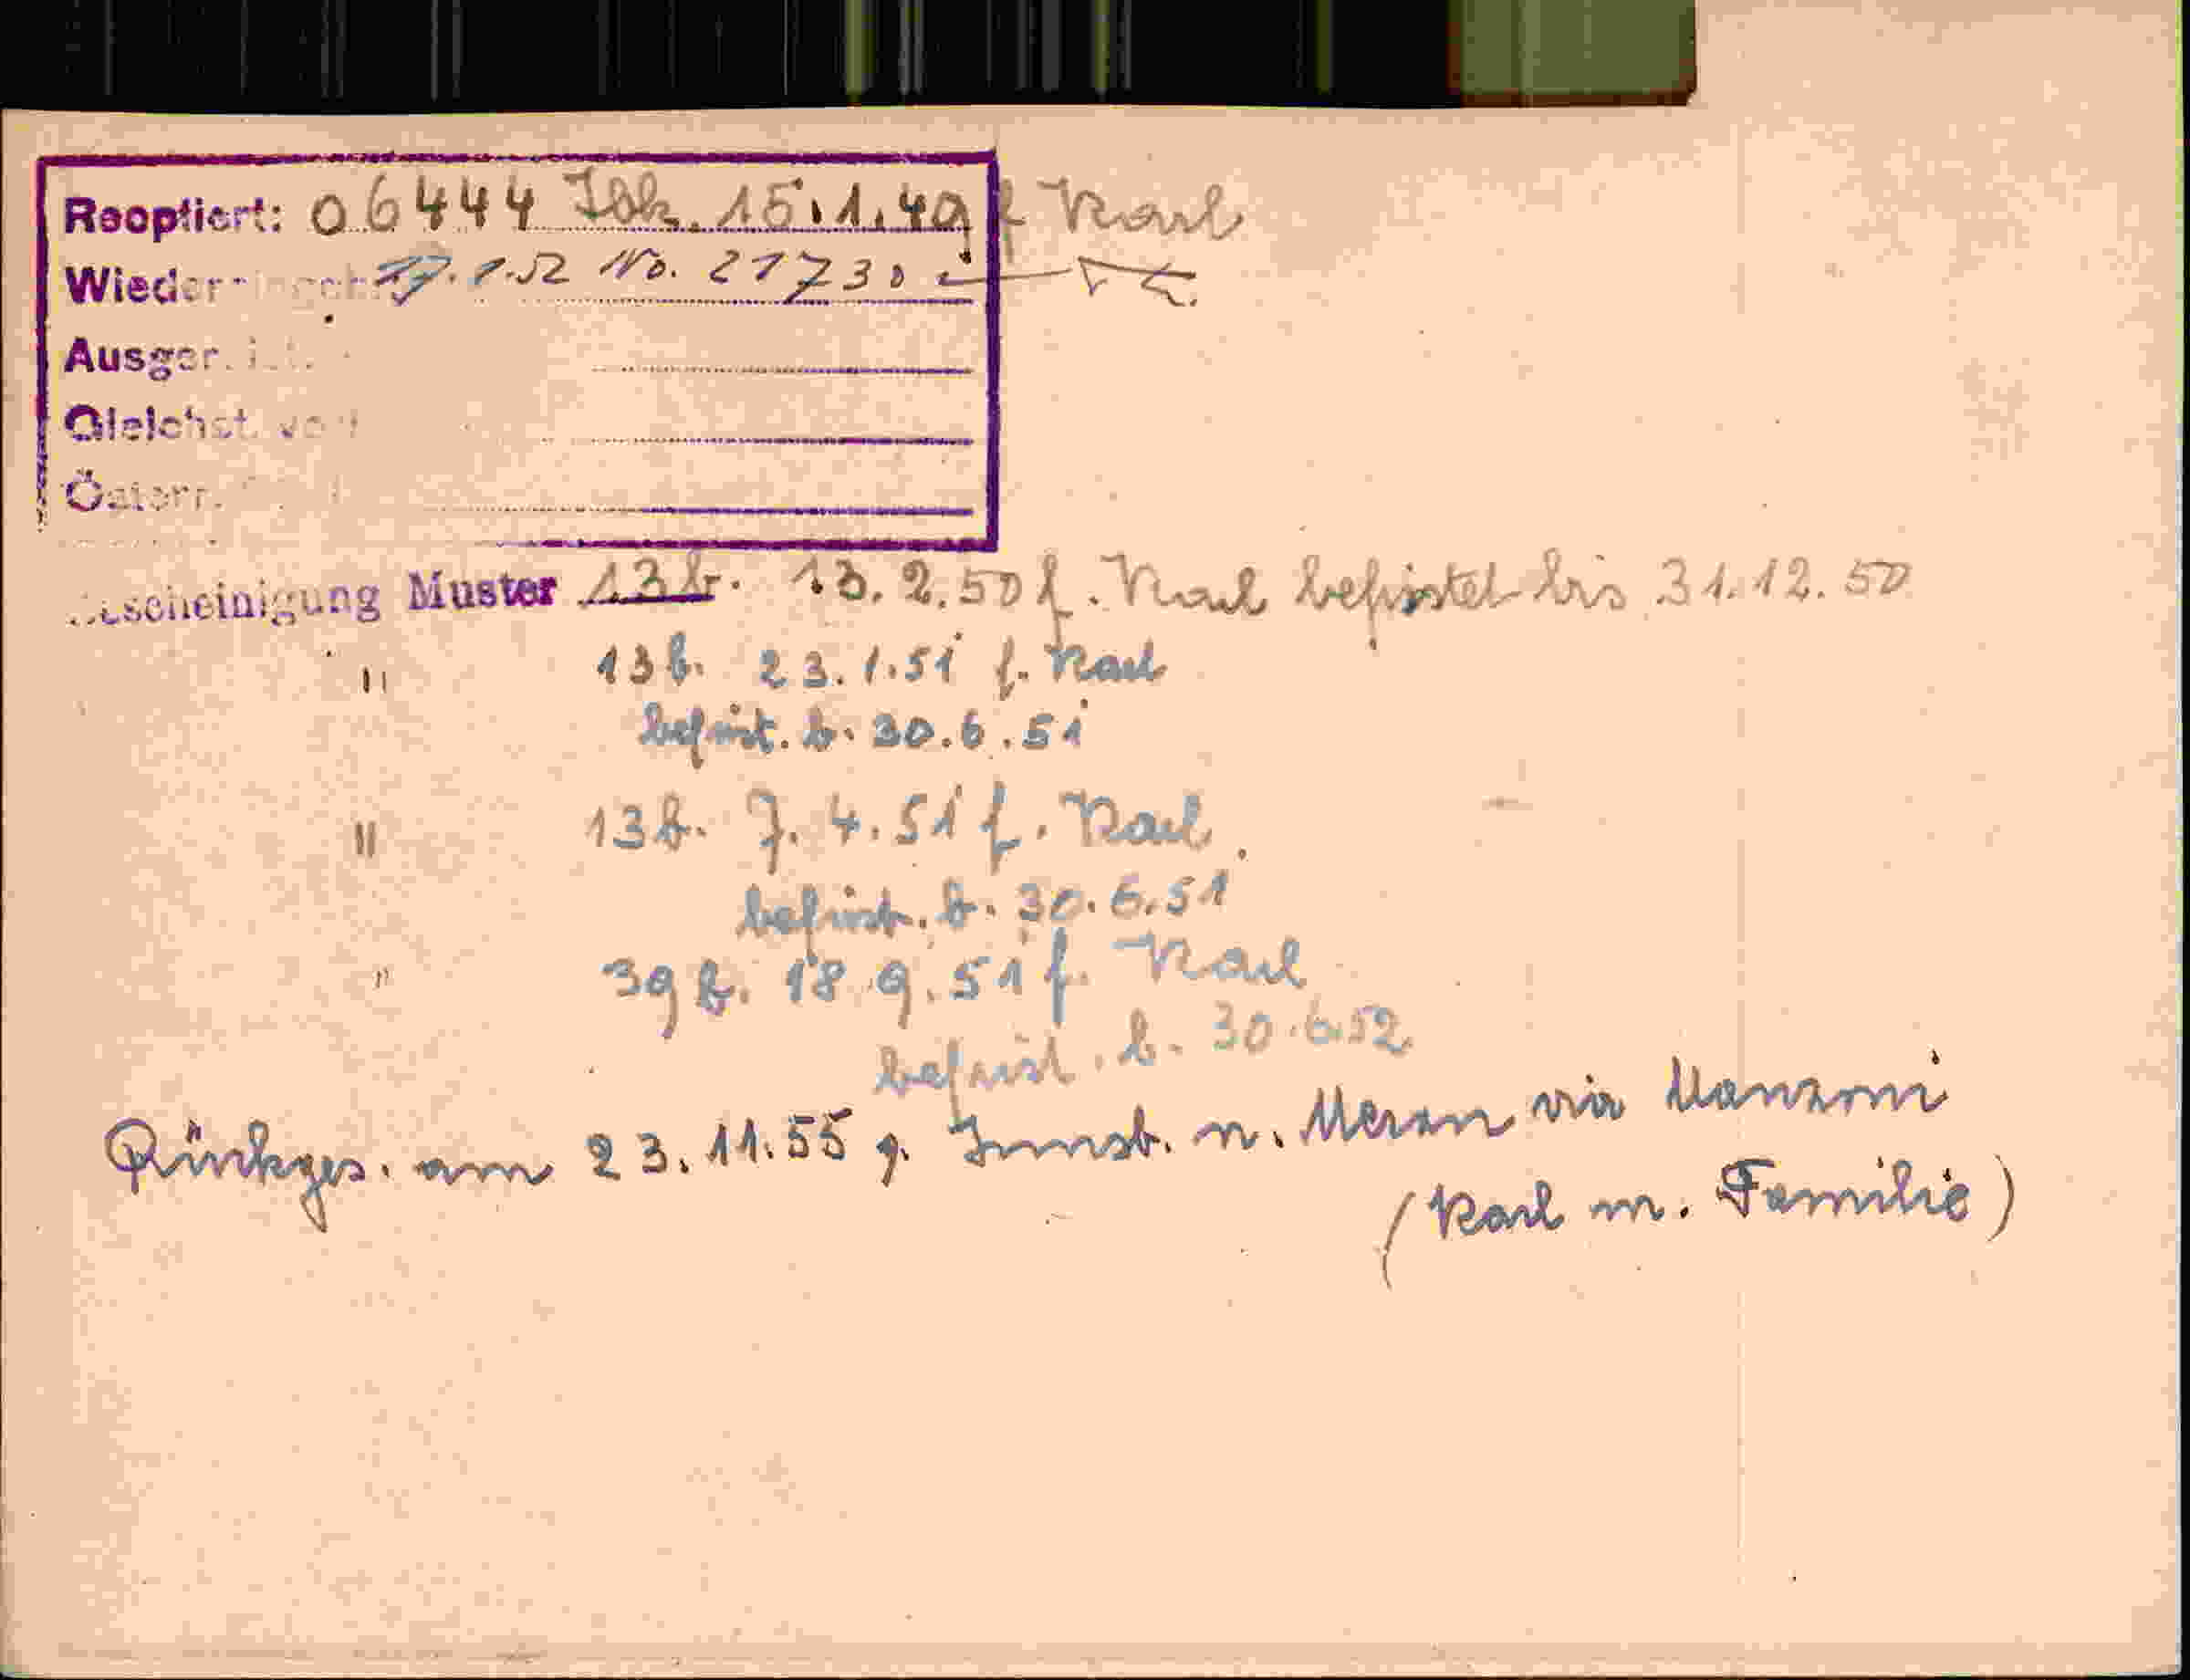 Reoptiert: 06444 Ibk. 15.1.49 f Karl
Wieder 17.1.52 No. 21730
Ausger.
Gleichst. von
Österr.
Bescheinigung Muster 13b. 13.2.50 f. Karl befristet bis 31.12.50
" 13b. 23.1.51 f. Karl
befrist. b. 30.6.51
" 13b. 7.4.51 f. Karl.
befrist. b. 30.6.51
" 39b. 18.9.51 f. Karl
befrist. b. 30.6.52
Rückges. am 23.11.55 g. Innsb. n. Meran via Manzoni
(Karl m. Familie)